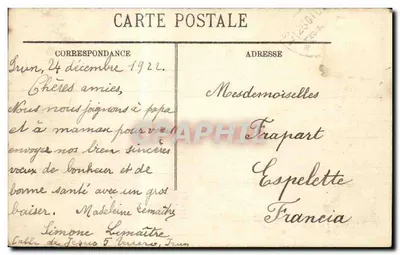 CARTE POSTALE
CORRESPONDANCE
ADRESSE
Irun, 24 décembre 1922.
Chères amies,
Nous nous joignons à papa
et à maman pour vous
envoyer nos bien sincères
vœux de bonheur et de
bonne santé avec un gros
baiser. Madeleine Lemaître
Simone Lemaître
Calle de Jesus 5 Irun
Mesdemoiselles
Frapart
Espelette
Francia